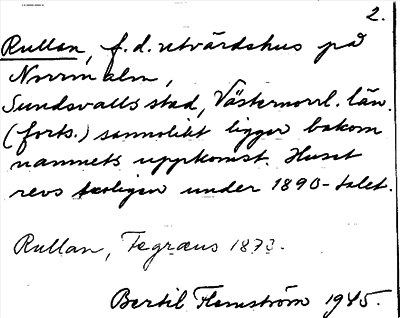 2.
Rullan, f.d. utvärdshus på
Norrmalm,
Sundsvalls stad, Västernorrl. län.
(forts.) sannolikt ligger bakom
namnets uppkomst. Huset
revs troligen under 1890-talet.
Rullan, Tegræus 1873.
Bertil Flemström 1945.